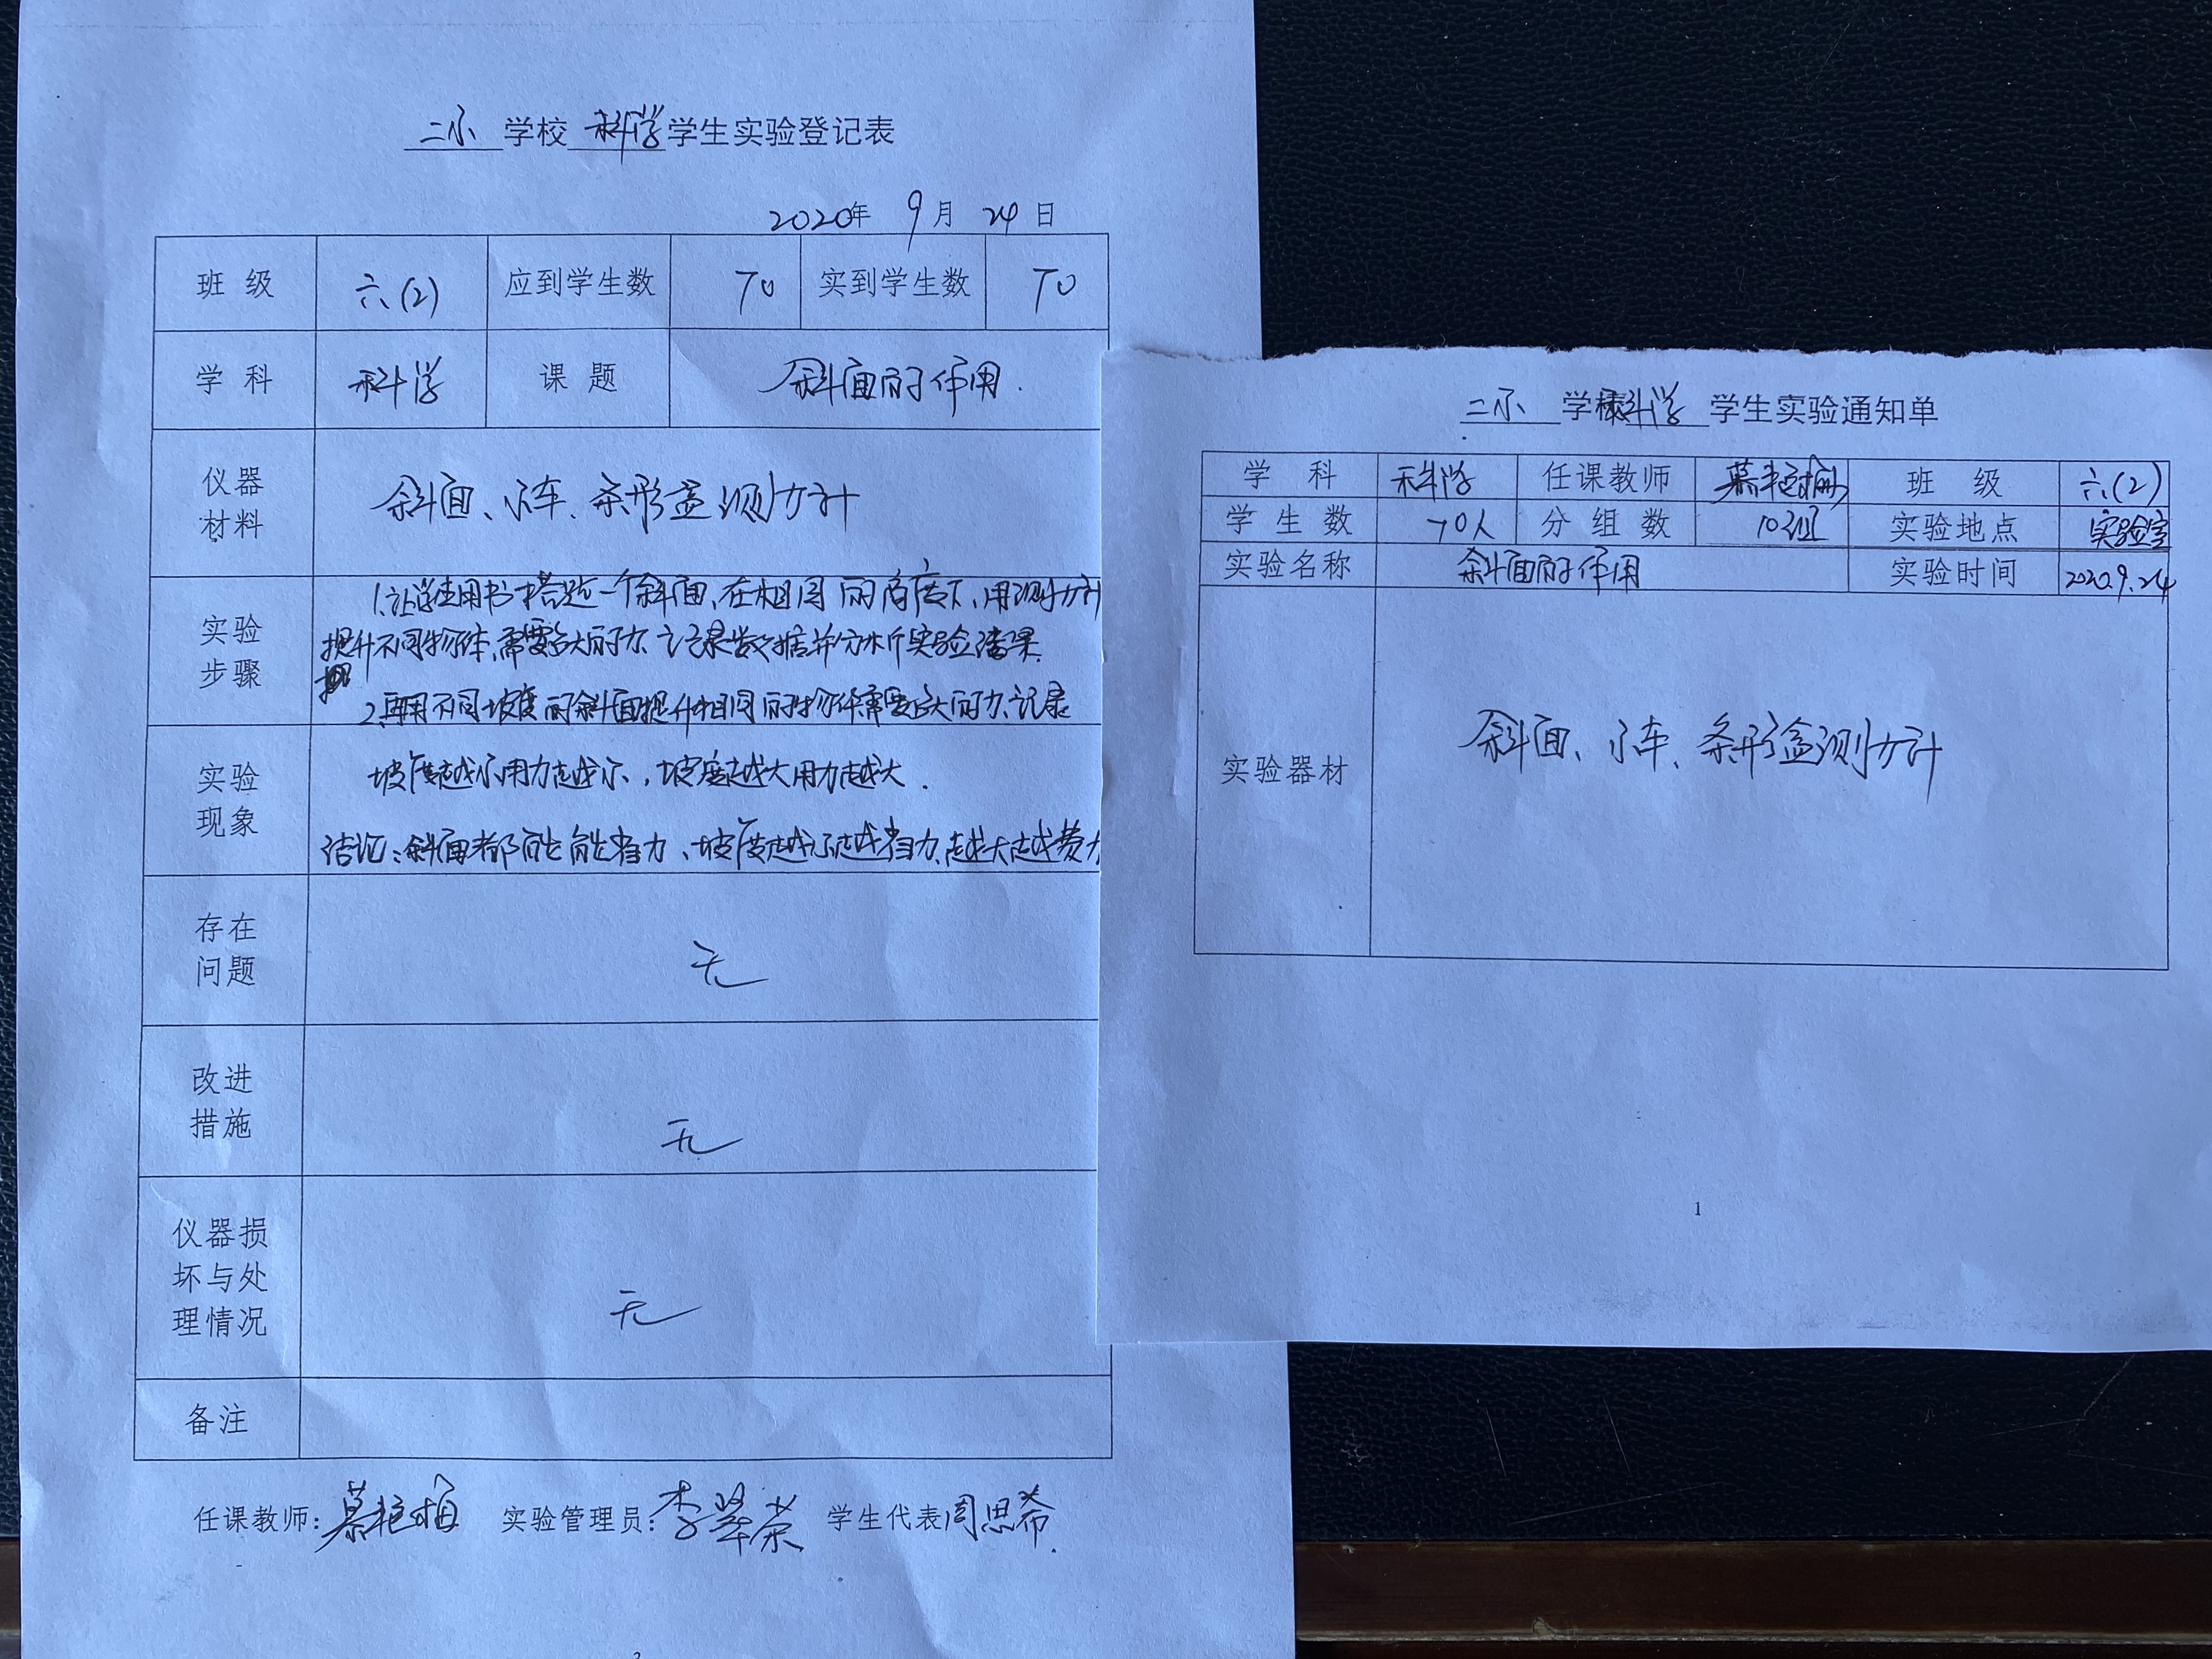 二小 学校 科学 学生实验登记表
2020年 9月 24日
班级 六(2) 应到学生数 70 实到学生数 70
学科 科学 课题 斜面的作用.
仪器材料 斜面、小车、条形盒测力计
实验步骤
1.让学生用书搭起一个斜面、在相同的高度下、用测力计
提升不同物体、需要多大的力、记录数据并分析实验结果.
2.再用不同坡度的斜面提升相同的物体需要多大的力、记录
实验现象
坡度越小用力越小，坡度越大用力越大.
结论:斜面都能能省力、坡度越小越省力、越大越费力
存在问题 无
改进措施 无
仪器损坏与处理情况 无
备注
任课教师: 慕艳梅 实验管理员: 李翠荣 学生代表 周思希.
二小 学校 科学 学生实验通知单
学科 科学 任课教师 慕艳梅 班级 六(2)
学生数 70人 分组数 10组 实验地点 实验室
实验名称 斜面的作用 实验时间 2020.9.24
实验器材 斜面、小车、条形盒测力计
1